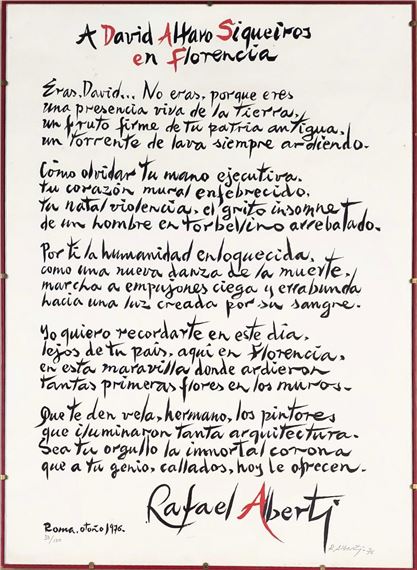 A David Alfaro Siqueiros
en Florencia
Eras, David... No eras, porque eres
una presencia viva de la tierra,
un fruto firme de tu patria antigua,
un torrente de lava siempre ardiendo.
Cómo olvidar tu mano ejecutiva,
tu corazón mural enfebrecido,
tu natal violencia, el grito insomne
de un hombre en torbellino arrebatado.
Por ti la humanidad enloquecida,
como una nueva danza de la muerte,
marcha a empujones ciega y errabunda
hacia una luz creada por su sangre.
Yo quiero recordarte en este día,
lejos de tu país, aquí en Florencia,
en esta maravilla donde ardieron
tantas primeras flores en los muros.
Que te den vela, hermano, los pintores
que iluminaron tanta arquitectura.
Sea tu orgullo la inmortal corona
que a tu genio, callados, hoy le ofrecen.
Rafael Alberti
Roma, otoño 1976.
R. Alberti-76